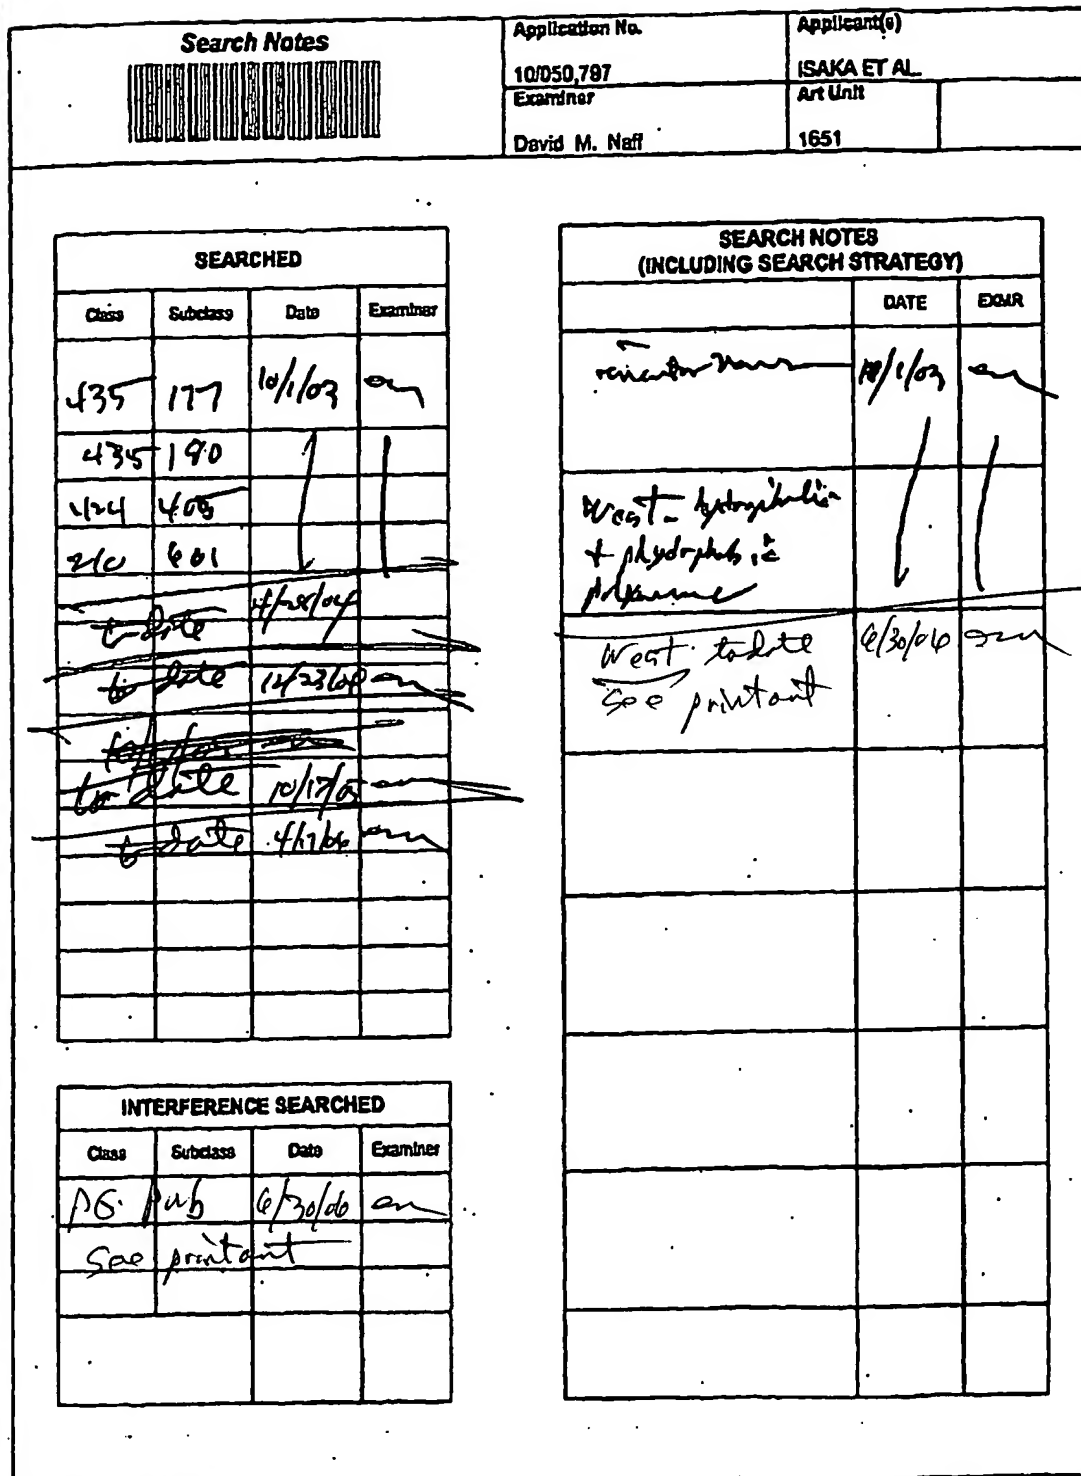 Search Notes
Application No.
10/050,797
Applicant(s)
ISAKA ET AL.
Examiner
David M. Naff
Art Unit
1651
SEARCHED
Class Subclass Date Examiner
435 177 10/1/03
435 180
424
210 601
to date 4/28/04
to date 12/23/04
to date 10/17/05
to date 4/17/06
INTERFERENCE SEARCHED
Class Subclass Date Examiner
PG. Pub 6/30/06
See printout
SEARCH NOTES
(INCLUDING SEARCH STRATEGY)
DATE EXMR
10/1/03
West hydrophilic
+
West to date 6/30/06
See printout